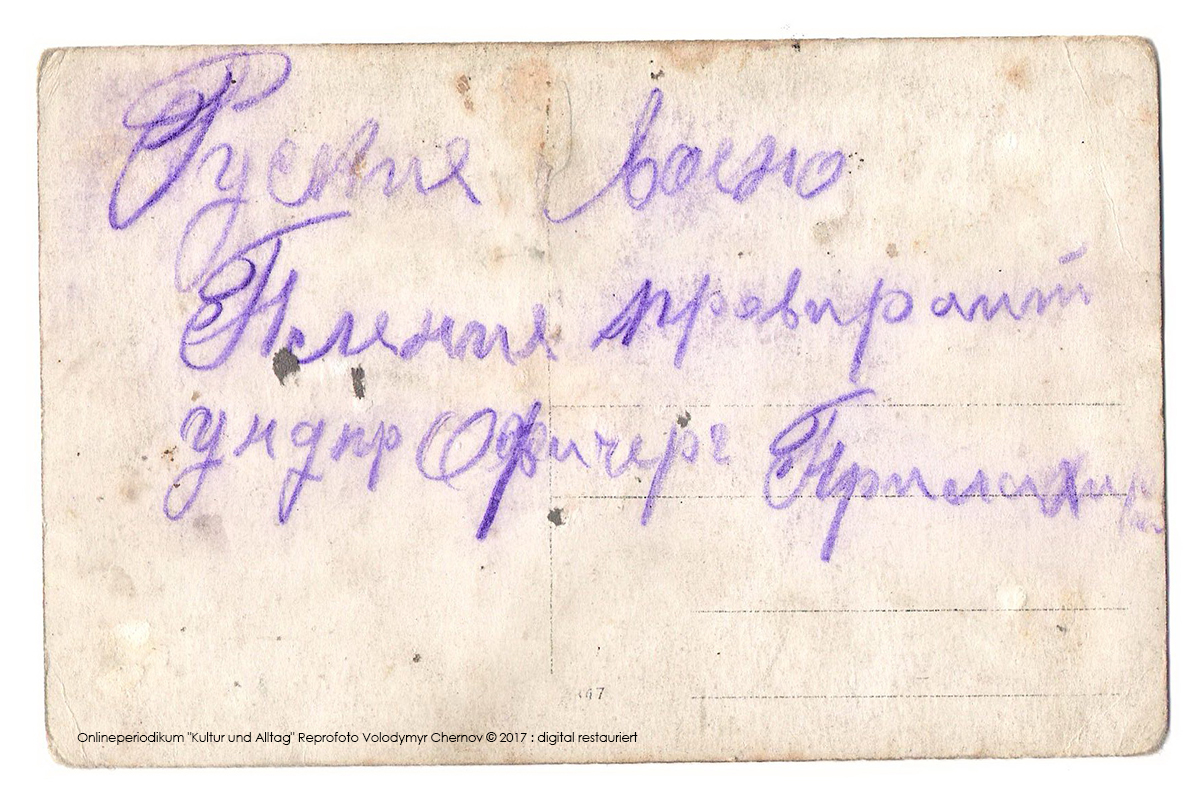 Руския Воено
Пления провираит
ундир Офичерг
197
Onlineperiodikum "Kultur und Alltag" Reprofoto Volodymyr Chernov © 2017 : digital restauriert